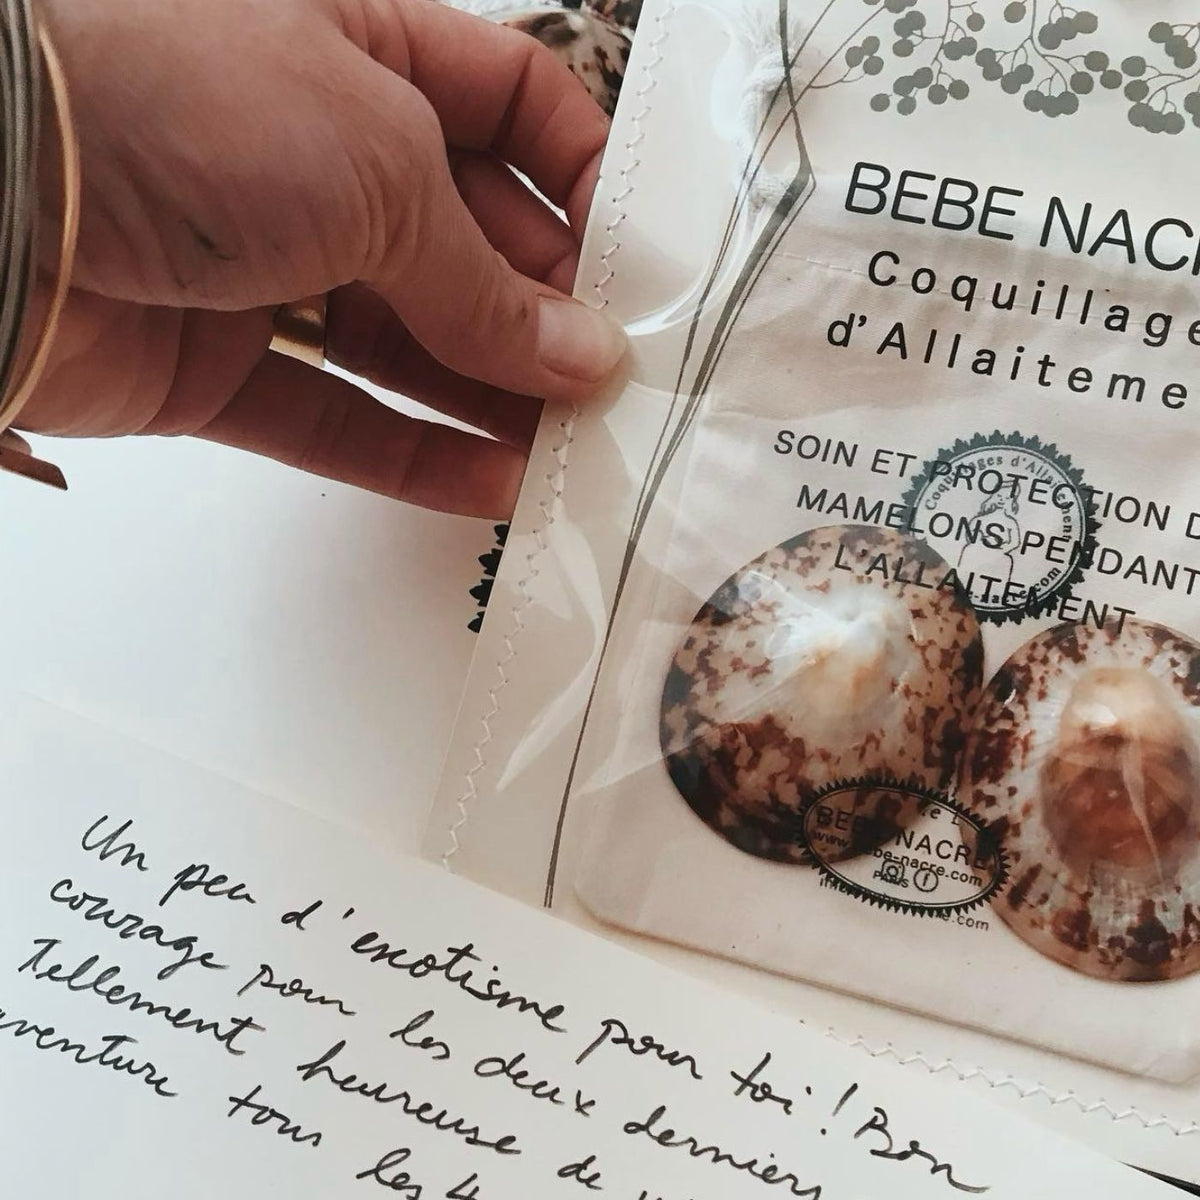 BEBE NAC
Coquillage
d'Allaiteme
SOIN ET PROTECTION D
MAMELONS PENDANT
L'ALLAITEMENT
Coquillages d'Allaitement
BEBE NACRE
PARIS
Un peu d'exotisme pour toi ! Bon
courage pour les deux derniers
Tellement heureuse de
aventure tous les 4